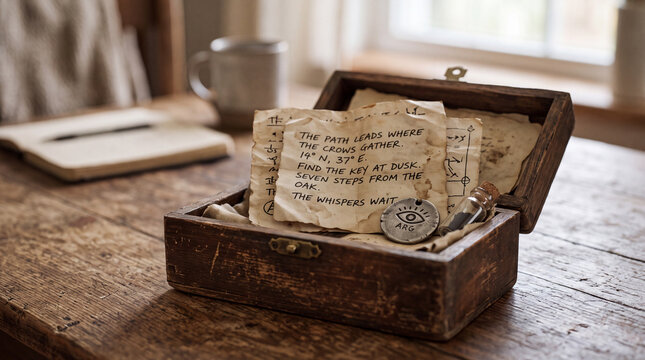 THE PATH LEADS WHERE
THE CROWS GATHER.
19° N, 37° E.
FIND THE KEY AT DUSK.
SEVEN STEPS FROM THE
OAK.
THE WHISPERS WAIT.
ARG